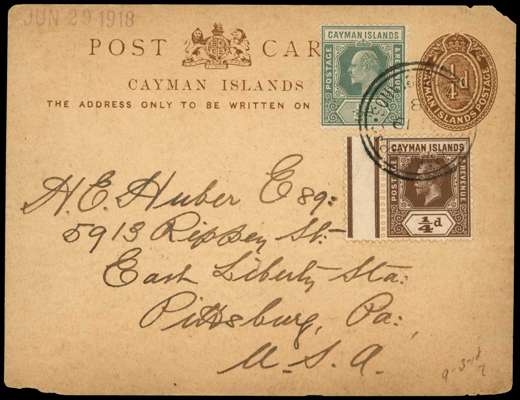 JUN 29 1918
POST CAR
CAYMAN ISLANDS
THE ADDRESS ONLY TO BE WRITTEN ON
CAYMAN ISLANDS
POSTAGE REVENUE
¼d
CAYMAN ISLANDS
POSTAGE REVENUE
¼d
H. E. Huber Esq:
5913 Rippey St:
East Liberty Sta:
Pittsburg, Pa:,
U.S.A.